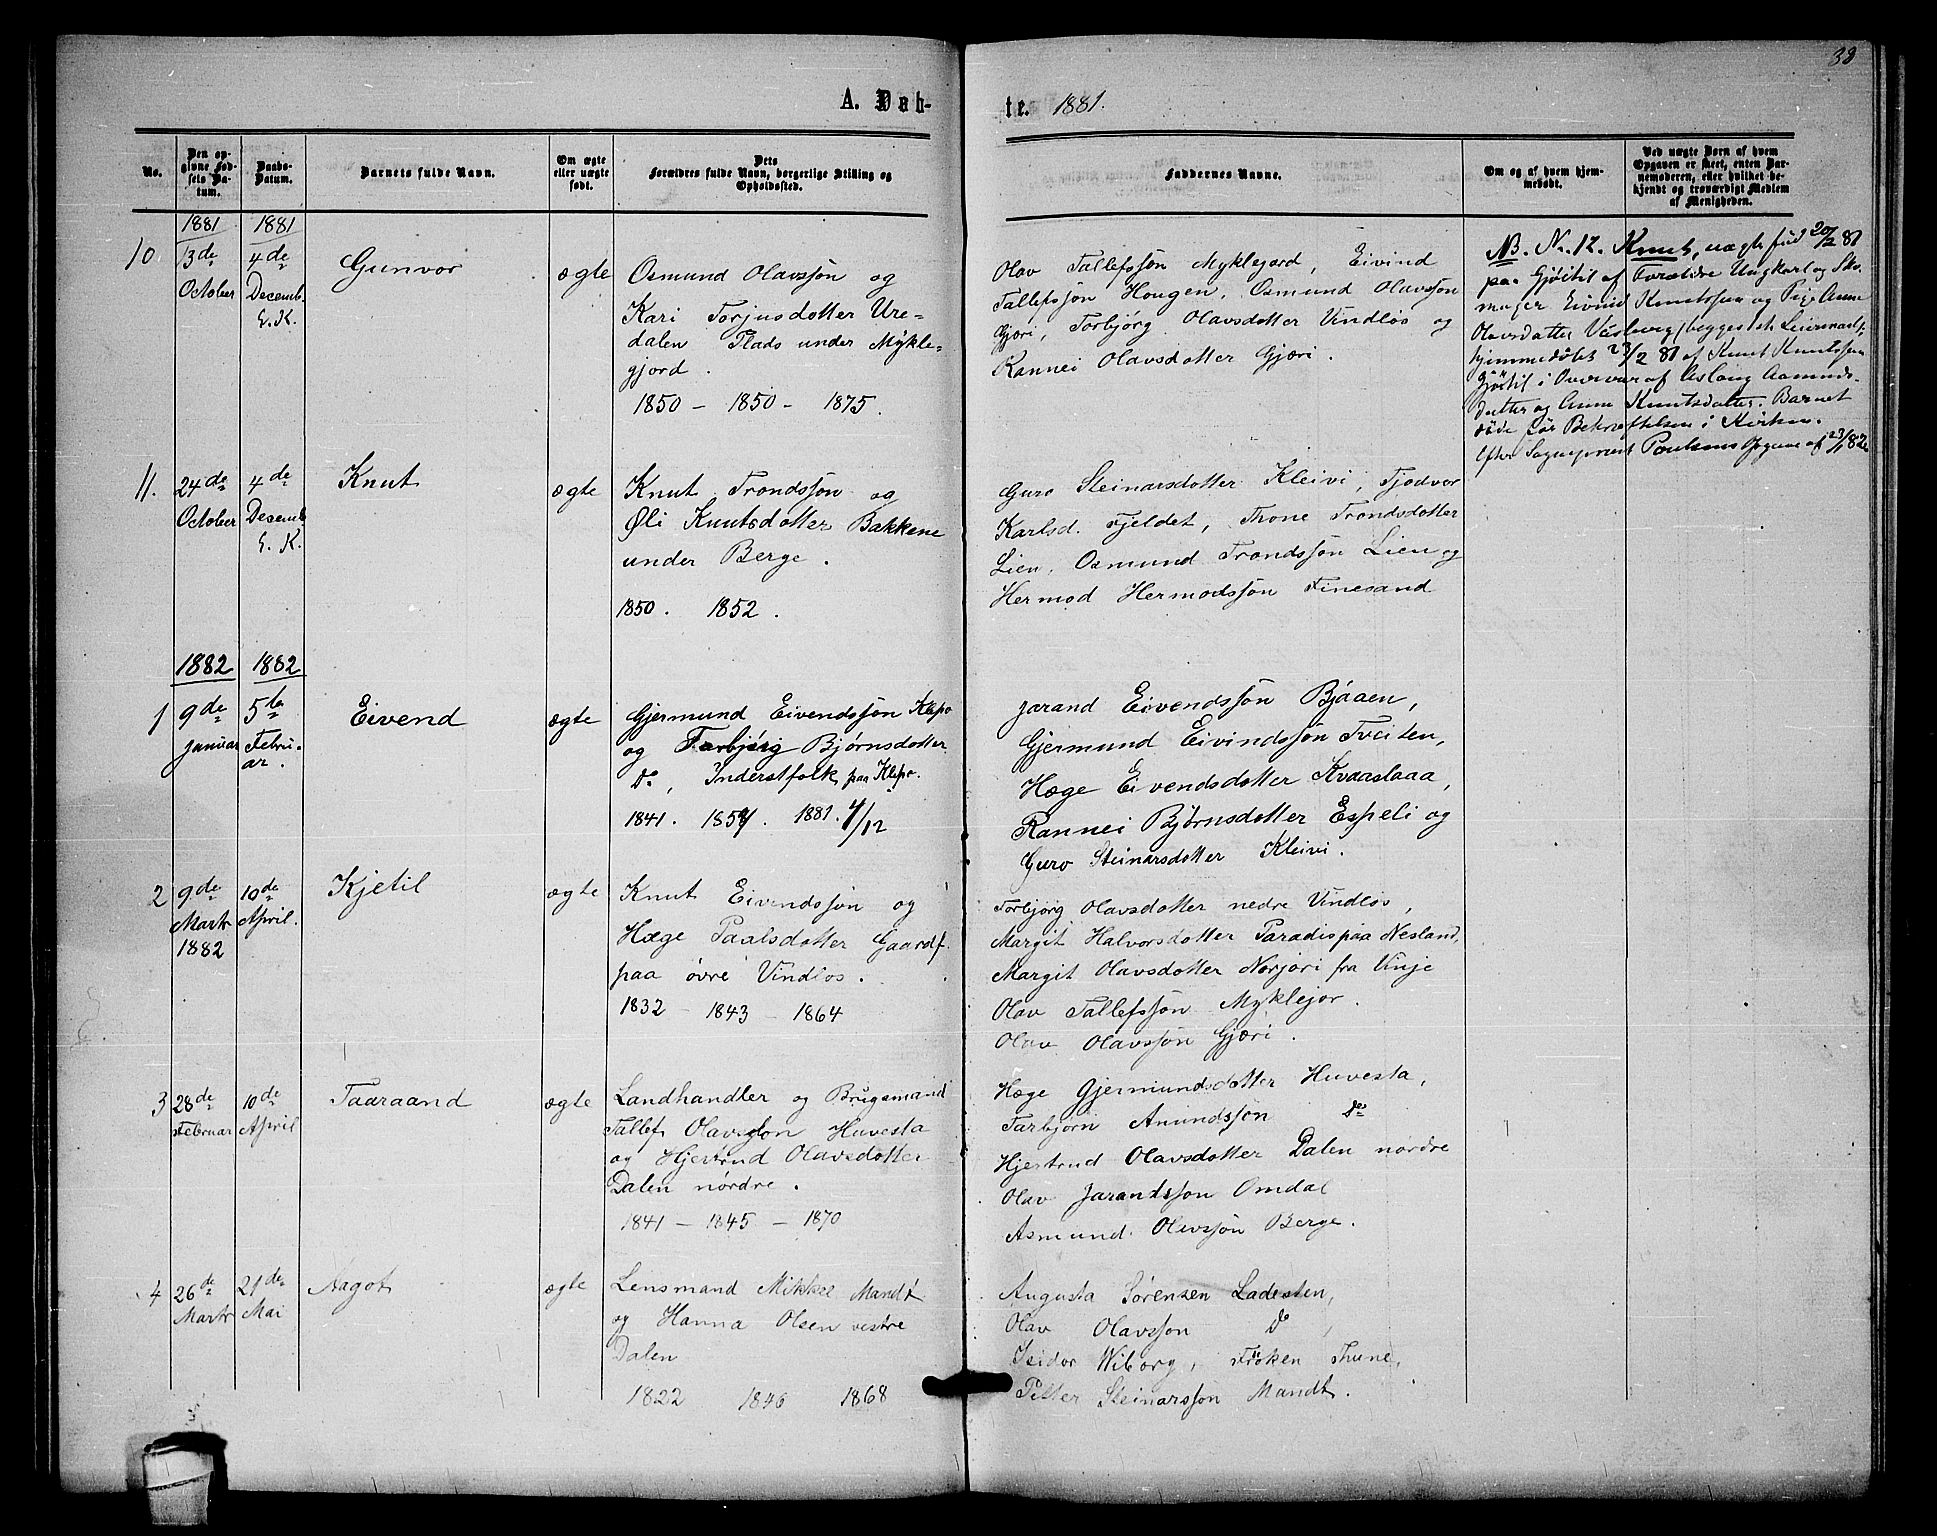 38
A. Døb-
te. 1881.
No.
Den op-
givne Fød-
sels Da-
tum.
Daabs-
Datum.
Barnets fulde Navn.
Om ægte
eller uægte
født.
Dets
Forældres fulde Navn, borgerlige Stilling og
Opholdssted.
Faddernes Navne.
Om og af hvem hjem-
medøbt.
Ved uægte Børn af hvem
Opgaven er skeet, enten Bar-
nemoderen, eller hvilket be-
kjendt og troværdigt Medlem
af Menigheden.
1881 1881
10.
13de
October
4de
Decemb.
E. K.
Gunvor
ægte
Osmund Olavssøn og
Kari Torjusdotter Ure-
dalen Plads under Mykle-
gjord.
1850 - 1850 - 1875.
Olav Tallefssøn Myklejord, Eivind
Tallefssøn Hougen, Osmund Olavssøn
Gjøri, Torbjørg Olavsdotter Vindløs og
Rannei Olavsdotter Gjøri.
NB. No. 12. Knut, uægte fød 20/2 81
paa Gjøitil af Forældre Ungkarl og Sko-
mager Eivind Knutssen og Pige Anne
Olavsdatter Vesberg (begges 1st Leiermaal)
hjemmedøbt 23/2 81 af Knut Knutssen
Gjøitil i Overvær af Aslaug Aamunds-
datter og Anne Knutsdatter. Barnet
døde før Bekræftelsen i Kirken.
Efter Sogneprest Paulsens Opgave af 23/1 82
11.
24de
October
4de
Desemb
E. K.
Knut
ægte
Knut Trondssøn og
Øli Knutsdotter Bakkene
under Berge.
1850. 1852.
Guro Steinarsdotter Kleivi, Tjodvor
Karlsd. Fjeldet, Thone Trondsdotter
Lien, Osmund Trondssøn Lien og
Hermod Hermodssøn Finesand
1882 1882
1
9de
Januar
5te
Febru-
ar.
Eivend
ægte
Gjermund Eivendssøn Klepo
og Torbjørg Bjørnsdotter
Do, Inderstfolk paa Klepo.
1841. 1854. 1881. 4/12
Jarand Eivendssøn Bjåaen,
Gjermund Eivindssøn Tveiten,
Hæge Eivendsdotter Kvaaslaaa,
Rannei Bjørnsdotter Espeli og
Guro Steinarsdotter Kleivi.
2
9de
Marts
1882
10de
April.
Kjetil
ægte
Knut Eivendssøn og
Hæge Paalsdotter Gaardf.
paa øvre Vindlos.
1832 - 1843 - 1864
Torbjørg Olavsdotter nedre Vindløs,
Margit Halvorsdotter Paradis paa Nesland,
Margit Olavsdotter Norjori fra Vinje
Olav Tallefssøn Myklejor.
Olav Olavssøn Gjøri.
3
28de
Februar
10de
April
Taaraand
ægte
Landhandler og Brugsmand
Tallef Olavssøn Huvesta
og Hjertrud Olavsdotter
Dalen nørdre.
1841 - 1845 - 1870
Hæge Gjermundsdotter Huvesta,
Tarbjørn Anundssøn Do
Hjertrud Olavsdotter Dalen nørdre
Olav Jarandssøn Omdal
Asmund Olevssøn Berge.
4
26de
Marts
21de
Mai
Aagot
ægte
Lensmand Mikkel Mandt
og Hanna Olsen vestre
Dalen
1822 1846 1868
Augusta Sørensen Ladesten,
Olav Olavssøn Do,
Isidor Wiborg, Frøken Thune,
Petter Steinarssøn Mandt.